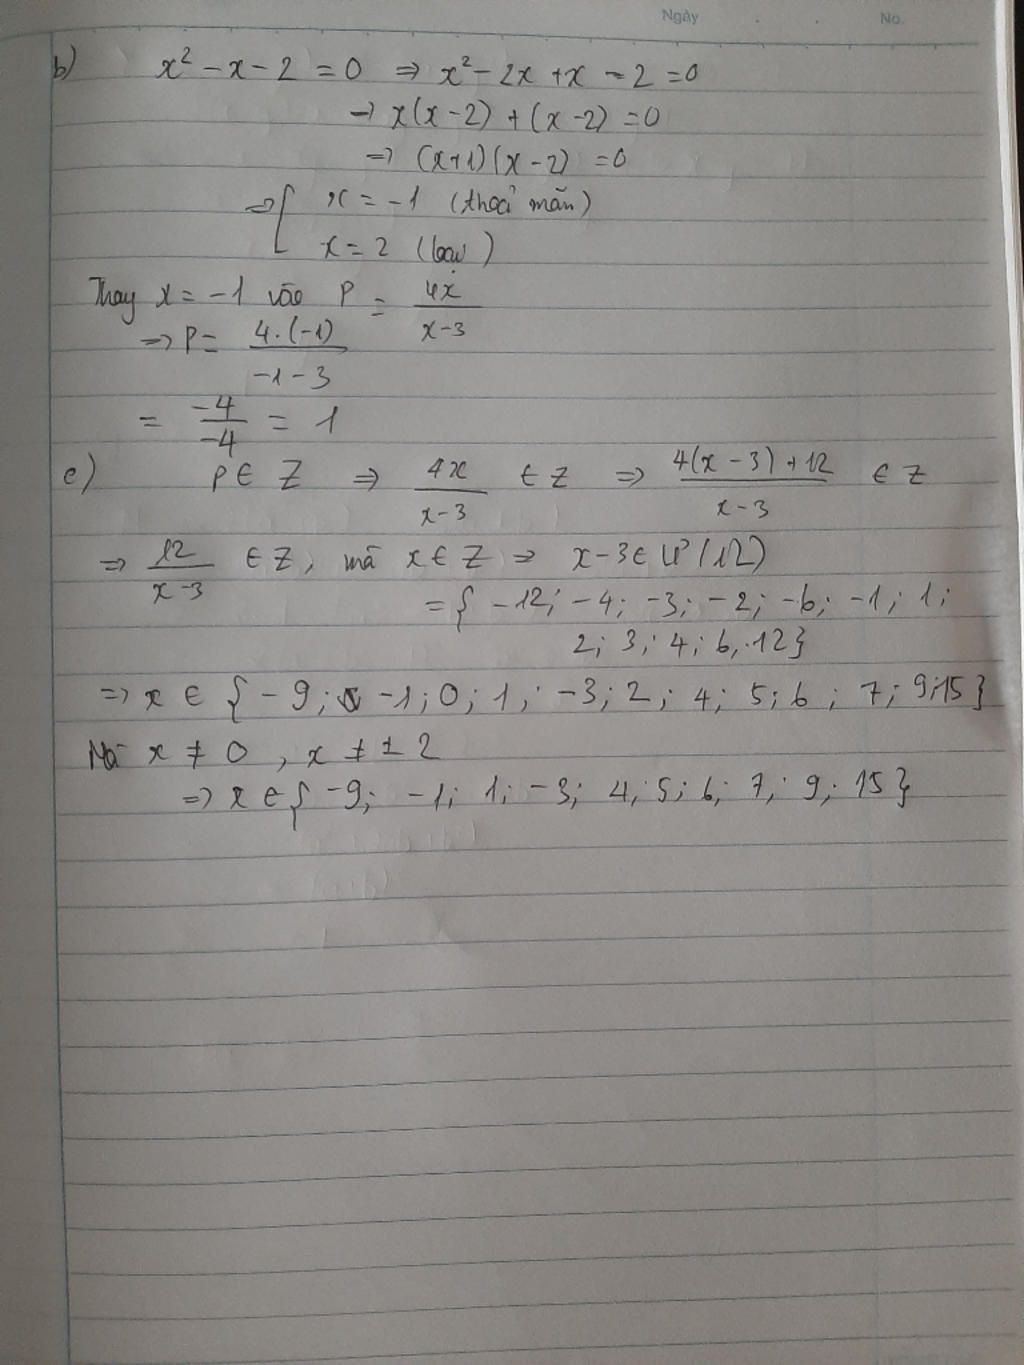 Ngày . . No.
b) x² - x - 2 = 0 ⇒ x² - 2x + x - 2 = 0
⇒ x(x - 2) + (x - 2) = 0
⇒ (x+1)(x - 2) = 0
⇒ [ x = -1 (thoả mãn)
x = 2 (loại)
Thay x = -1 vào P = 4x / x-3
⇒ P = 4.(-1) / -1 - 3
= -4 / -4 = 1
c) P ∈ Z ⇒ 4x / x-3 ∈ Z ⇒ 4(x - 3) + 12 / x - 3 ∈ Z
⇒ 12 / x-3 ∈ Z, mà x ∈ Z ⇒ x - 3 ∈ Ư(12)
= { -12; -4; -3; -2; -6; -1; 1;
2; 3; 4; 6, 12}
⇒ x ∈ { - 9; -1; 0; 1; -3; 2; 4; 5; 6; 7; 9; 15 }
Mà x ≠ 0, x ≠ ± 2
⇒ x ∈ { -9; -1; 1; -3; 4, 5; 6; 7; 9; 15 }